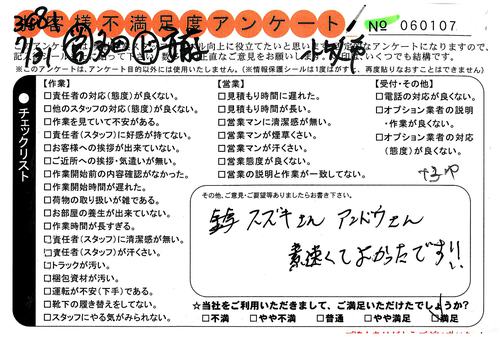 お客様不満足度アンケート
№ 060107
7/31
※このアンケートは、アンケート目的以外には使用いたしません。(※情報保護シールは1度はがすと、再度貼りなおすことはできません)
チェックリスト
【作業】
□責任者の対応(態度)が良くない。
□他のスタッフの対応(態度)が良くない。
□作業を見ていて不安がある。
□責任者(スタッフ)に好感が持てない。
□お客様への挨拶が出来ていない。
□ご近所への挨拶・気遣いが無い。
□作業開始前の内容確認がなかった。
□作業開始時間が遅れた。
□荷物の取り扱いが雑である。
□お部屋の養生が出来ていない。
□作業時間が長すぎる。
□責任者(スタッフ)に清潔感が無い。
□責任者(スタッフ)が汗くさい。
□トラックが汚い。
□梱包資材が汚い。
□運転が不安(下手)である。
□靴下の履き替えをしてない。
□スタッフにやる気がみられない。
【営業】
□見積もり時間に遅れた。
□見積もり時間が長い。
□営業マンに清潔感が無い。
□営業マンが煙草くさい。
□営業マンが汗くさい。
□営業態度が良くない。
□営業の説明と作業が一致してない。
【受付・その他】
□電話の対応が良くない。
□オプション業者の説明
・作業が良くない。
□オプション業者の対応
(態度)が良くない。
その他、ご意見・ご要望等ありましたらお書き下さい。
スズキさん アンドウさん
素速くてよかったです!!
☆当社をご利用いただきまして、ご満足いただけたでしょうか?
□不満 □やや不満 □普通 □やや満足 □満足